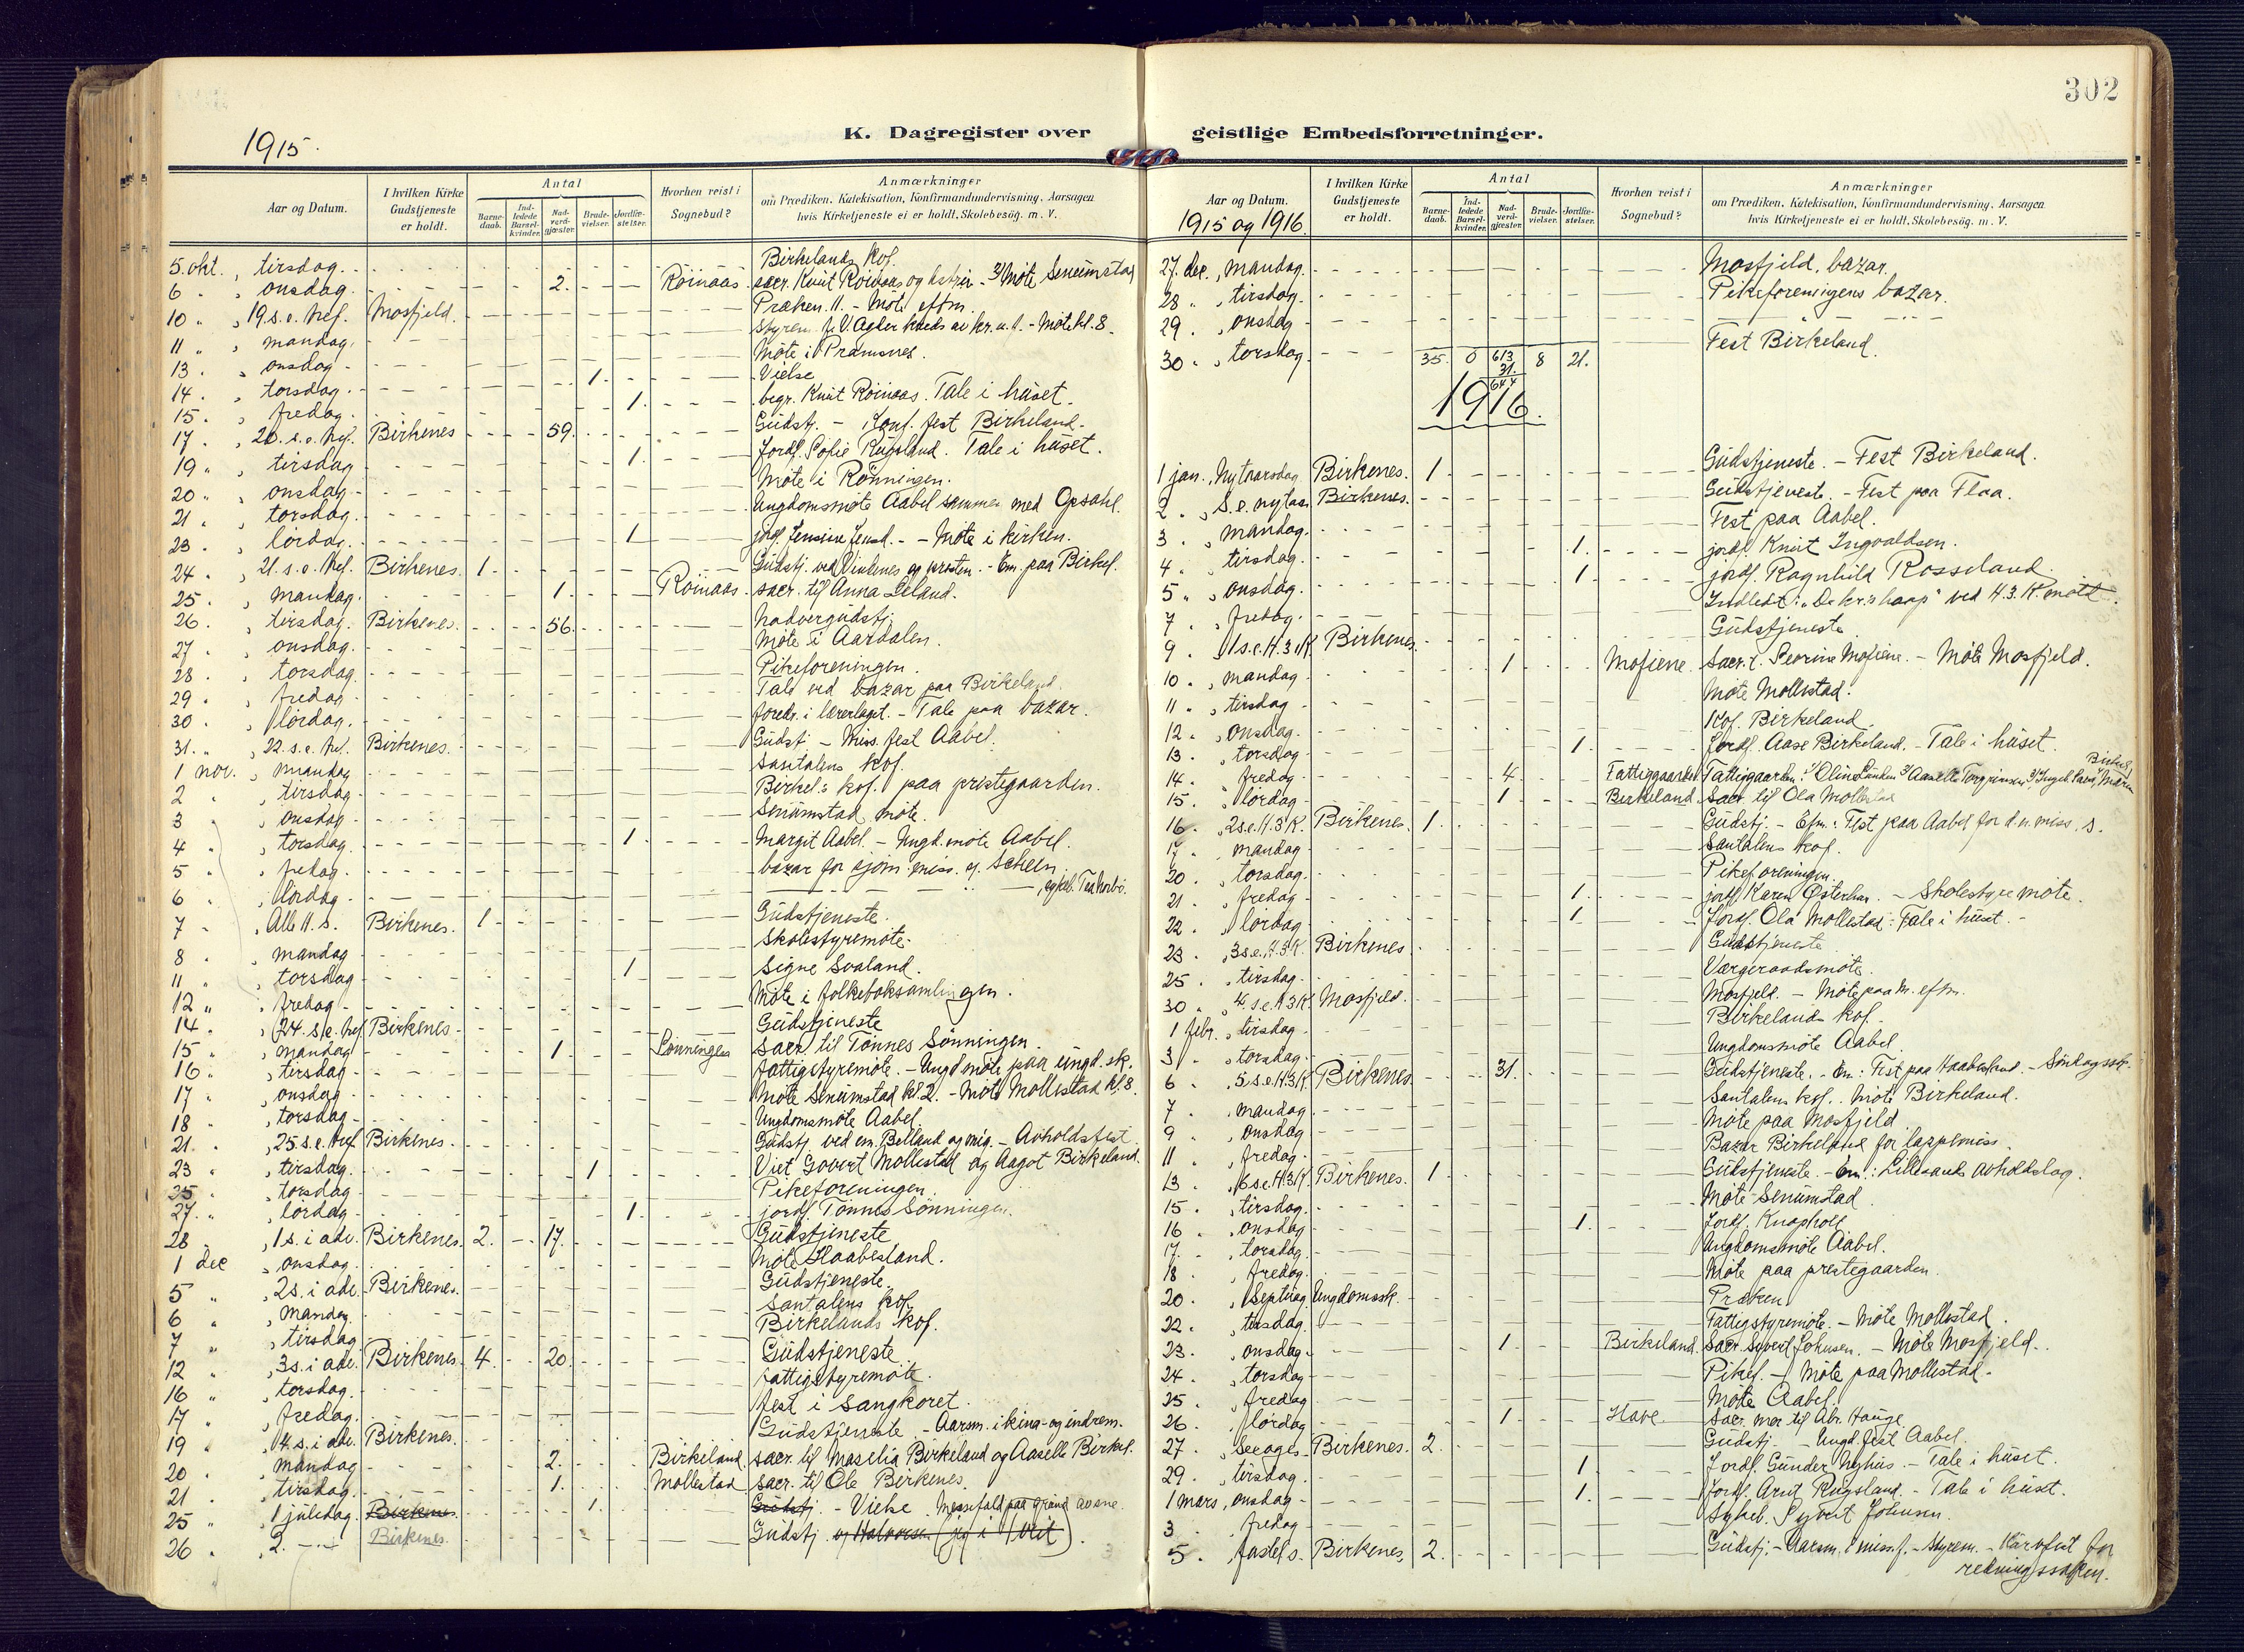 302
K. Dagregister over geistlige Embedsforretninger.
1915.
Aar og Datum. I hvilken Kirke Gudstjeneste er holdt. Antal Barnedaab. Indledede Barselkvinder. Nadverdgjæster. Brudevielser. Jordfæstelser. Hvorhen reist i Sognebud? Anmærkninger om Prædiken, Katekisation, Konfirmandundervisning, Aarsagen hvis Kirketjeneste ei er holdt, Skolebesøg. m. V.
5. okt., tirsdag. Birkelands kof.
6 " , onsdag. 2. Röinaas sacr. Knut Röinaas og hustru - Möte Senumstad
10 " , 19. s. e. tref. Mosfjeld. Præken 11. - Möte eftm.
11 " , mandag. Styrem. f. V. Agder kreds av kr. u. f. - Möte kl. 8.
13. , onsdag Möte i Pramsnes.
14. , torsdag. 1. Vielse
15. , fredag. 1. begr. Knut Röinaas. Tale i huset.
17. , 20. s. e. tref. Birkenes 59. Gudstj. - Konf. fest Birkeland.
19 " , tirsdag 1. Jordf. Sofie Rugsland. Tale i huset.
20 " , onsdag Möte i Rönningen.
21 , torsdag. Ungdomsmöte Aabel sammen med Opsahl.
23. , lördag. 1 jordf. Jensine - Möte i kirken.
24 " , 21. s. e. tref. Birkenes. 1. Gudstj. ved Vinlenes og presten. - Em. paa Birkel.
25. , mandag. 1. Röinaas. sacr. til Anna Leland.
26. , tirsdag. Birkenes. 56. Nadvergudstj.
27 " , onsdag. Möte i Aardalen.
28. , torsdag. Pikeforeningen.
29 " , fredag Tale ved bazar paa Birkeland.
30. , lördag. foredr. i lærerlaget. - Tale paa bazar.
31. " , 22. s. e. tref. Birkenes. Gudstj. - Miss. fest Aabel.
1 nov. , mandag Santalens kof.
2 , tirsdag Birkel:s kof. paa prestegaarden.
3 , onsdag Senumstad möte.
4 " , torsdag. 1. Margit Aabel. - Ungd. möte Aabel.
5 " , fredag. bazar for sjöm. miss. og Scheen.
6 " , lördag -
7 - , Alle H. s. Birkenes. 1 Gudstjeneste.
8 . , mandag Skolestyremöte.
11 " , torsdag 1 Signe Svaland.
12 " , fredag - Möte i folkeboksamlingen.
14 " , 24. s. e. tref Birkenes Gudstjeneste
15 " , mandag 1. Sönningen Sacr. til Tönnes Sönningen.
16 " , tirsdag Fattigstyremöte. - Ungd möte paa ungd. sk.
17 " , onsdag Möte Senumstad kl. 2. - Möte Mollestad kl. 8.
18 " , torsdag Ungdomsmöte Aabel.
21. " , 25. s. e. tref Birkenes Gudstj. ved em. Belland og mig. - Avholdsfest
23 " , tirsdag. 1 Viet Govert Mollestad og Aagot Birkeland.
25 " , torsdag Pikeforeningen.
27. " , lördag 1. jordf. Tönnes Sönningen.
28 " , 1 s. i adv. Birkenes. 2. 17. Gudstjeneste
1 dec , onsdag. Möte Haabesland.
5 " , 2s. i adv. Birkenes. Gudstjeneste.
6 " , mandag. Santalens kof.
7 " , tirsdag Birkelands kof.
12 " , 3s. i adv. Birkenes. 4. 20. Gudstjeneste
16 " , torsdag. Fattigstyremöte.
17 " , fredag. fest i sangkoret.
19 " , 4. s. i adv. Birkenes. Gudstjeneste - Aarsm. i kina- og indrem.
20 " , mandag 2. Birkeland. sacr. til Masilia Birkeland og Aaselle Birkel.
21. " , tirsdag 1. Mollestad sacr. til Ole Birkenes.
25 " , 1 juledag. Birkenes 1. Gudstj. - Vielse Messefald paa grund
26 . , 2. -"- Birkenes. Gudstj. og Halvorsen (jeg i )
1915 og 1916.
Aar og Datum. I hvilken Kirke Gudstjeneste er holdt. Antal Barnedaab. Indledede Barselkvinder. Nadverdgjæster. Brudevielser. Jordfæstelser. Hvorhen reist i Sognebud? Anmærkninger om Prædiken, Katekisation, Konfirmandundervisning, Aarsagen hvis Kirketjeneste ei er holdt, Skolebesøg. m. V.
27. dec., mandag. Mosfjeld, bazar.
28 " , tirsdag. Pikeforeningens bazar.
29 . , onsdag -
30 . , torsdag. 35. 0 613 8 21. Fest Birkeland.
31.
644
1916.
1 jan., Nytaarsdag Birkenes. 1 Gudstjeneste. - Fest Birkeland.
2 . , S. e. nytaar Birkenes. Gudstjeneste. - Fest paa Flaa.
3 . , mandag. Fest paa Aabel.
4 . , tirsdag. 1. jordf. Knut Ingvaldsen.
5 " , onsdag. 1. jordf. Ragnhild Rosseland.
7 . , fredag. Indledt: "De kr:s haap" ved H. 3. K. möte.
9 . 1 s. e. H. 3 K. Birkenes. Gudstjeneste
10 . , mandag 1 Mosiene. Sacr. t. Mosiene. - Möte Mosfjeld.
11 " , tirsdag Möte Mollestad.
12 . , onsdag. Kof. Birkeland.
13. , torsdag 1. Jordf. Aase Birkeland. - Tale i huset.
14. fredag 4. Fattiggaarden Fattiggaarden:
15. , lördag 1 Birkeland. Sacr. til Ola Mollestad
16. , 2s.e.H.3.K. Birkenes. 1. Gudstj. - Efm.: Fest paa Aabel for d. n. miss. s.
17 . mandag Santalens kof.
20 . , torsdag. Pikeforeningen.
21. , fredag 1. jordf. Karen - Skolestyremöte.
22. , lördag 1. Jordf. Ola Mollestad: Tale i huset. -
23 . , 3s.e.H.3.K. Birkenes Gudstjeneste
25. , tirsdag. Værgeraadsmöte.
30 " , 4. s.e.H3K. Mosfjeld. Mosfjeld. - Möte paa M. efm.
1 febr. , tirsdag Birkelands kof.
3 . , torsdag Ungdomsmöte Aabel.
6 . , 5 s.e.H.3K Birkenes 31. Gudstjeneste. - Em: Fest paa Haabesland. - Söndagssk.
7 . , mandag Santalens kof. . Möte Birkeland.
9 " , onsdag Möte paa Mosfjeld.
11 " , fredag. Bazar Birkeland for lappemiss.
13 . , 6 s.e.H.3K. Birkenes. 1 Gudstjeneste. - Em: Lillesands avholdslag.
15. , tirsdag. Möte Senumstad.
16 , onsdag 1. Jordf. Knaphol
17. , torsdag. Ungdomsmöte Aabel.
18 . , fredag. Möte paa prestegaarden.
20 . , Septuag. Ungdomssk. Præken
22 . , tirsdag. Fattigstyremöte. - Möte Mollestad.
23. , onsdag. 1. Birkeland. Sacr. Syvert Johnsen. - Möte Mosfjeld.
24. , torsdag Pikef. - Möte paa Mollestad.
25 . , fredag Möte Aabel.
26. , lördag 1. Have. Sacr. mor til Abr. Hauge.
27. , Sexages. Birkenes. 2. Gudstj. - Ungd. fest Aabel.
29. , tirsdag. 1 Jordf. Gunder Nyhus. - Tale i huset.
1 mars, onsdag 1. Jordf. Arnt Rugsland. - Tale i huset.
3 . , fredag Sykeb. Syvert Johnsen.
5. , fastel s. Birkenes. 2. Gudstj. - Aarsm. i miss. f. - Styrem. - for
redningssaken.